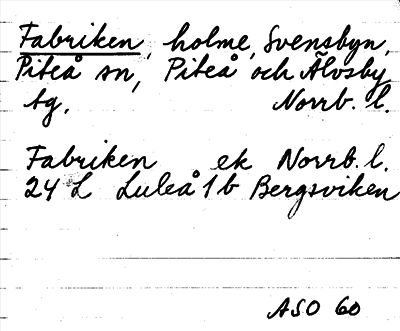 Fabriken, holme, Svensbyn,
Piteå sn, Piteå och Älvsby
tg, Norrb. l.
Fabriken ek Norrb. l.
24 L Luleå 1b Bergsviken
ASO 60